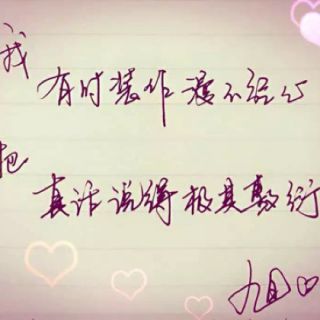 我
有时装作漫不经心
把
真话说得极其敷衍
旭日